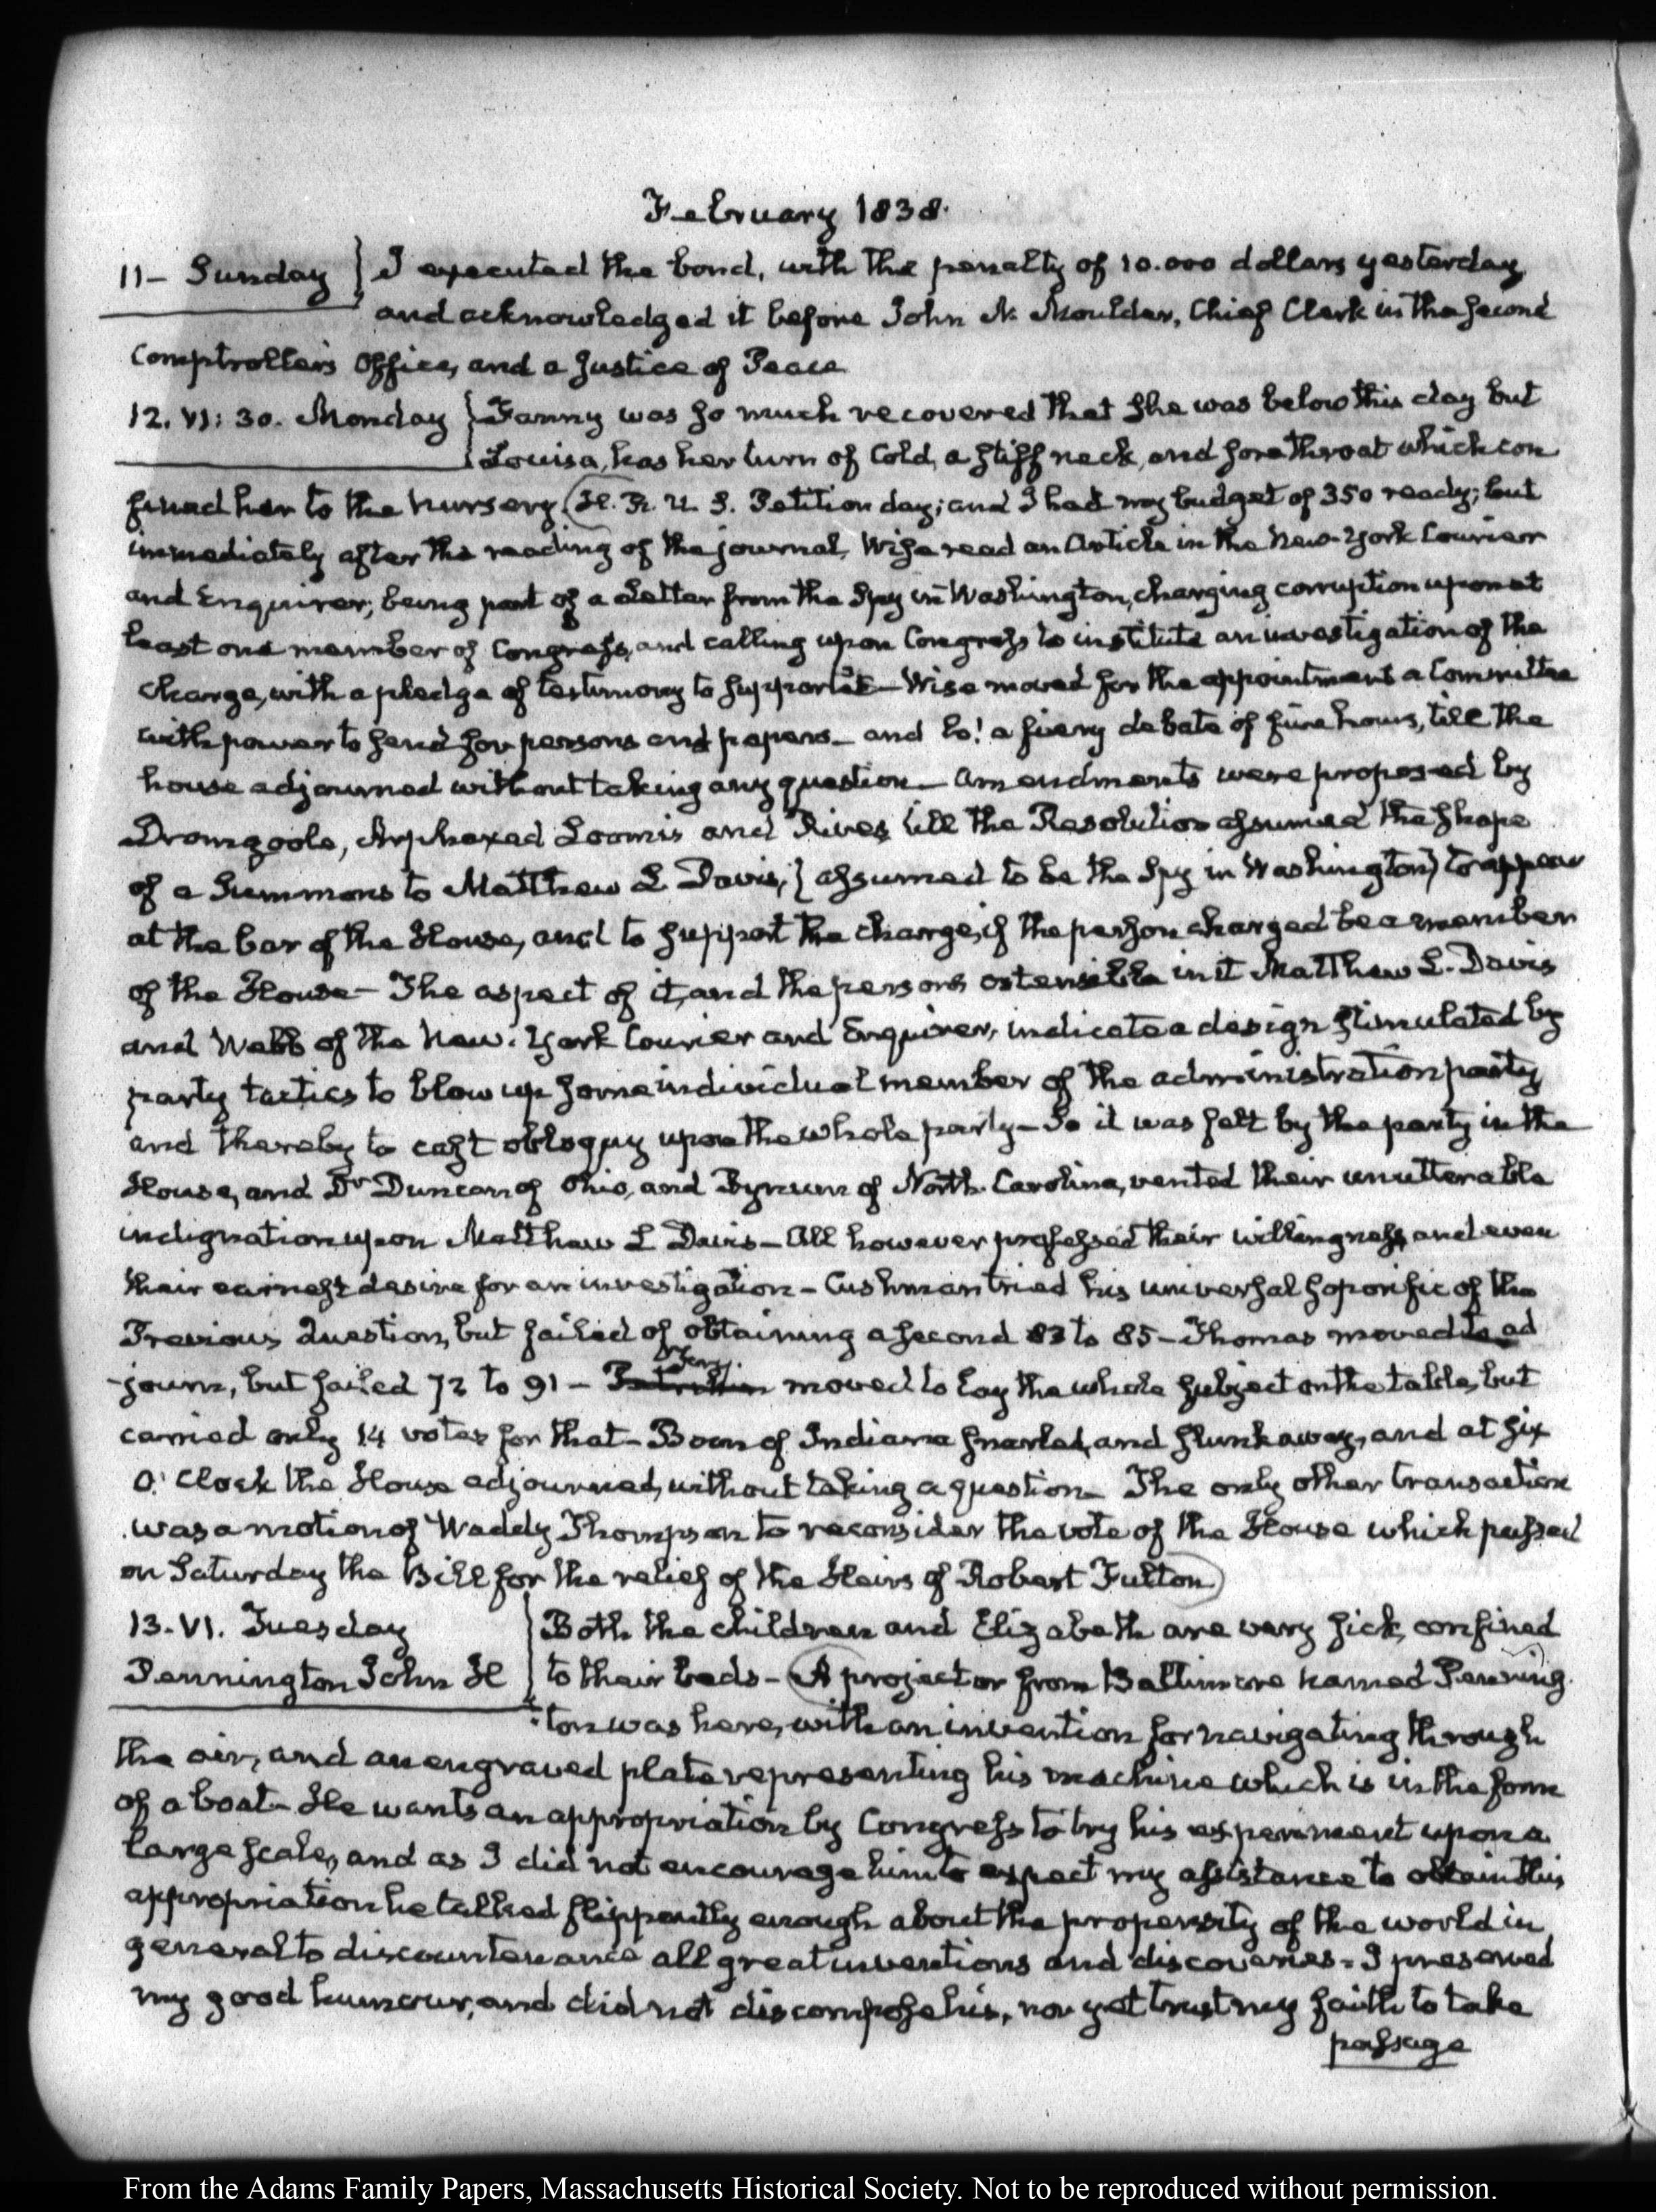 February 1838.
11- Sunday } I executed the bond, with the penalty of 10.000 dollars yesterday
and acknowledged it before John N. Moulder, Chief Clerk in the second
Comptroller's Office, and a Justice of Peace
12. VI: 30. Monday } Fanny was so much recovered that she was below this day but
Louisa, has her turn of Cold, a stiff neck, and sore throat which con
fined her to the nursery (H. R. U. S. Petition day; and I had my budget of 350 ready; but
immediately after the reading of the journal, Wise read an Article in the New-York Courier
and Enquirer; being part of a Letter from the Spy in Washington, charging corruption upon at
least one member of Congress, and calling upon Congress to institute an investigation of the
charge, with a pledge of testimony to support it - Wise moved for the appointment a Committee
with power to send for persons and papers - and lo! a fiery debate of five hours, till the
house adjourned without taking any question - Amendments were proposed by
Dromgoole, Arphaxed Loomis and Rives till the Resolution assumed the shape
of a Summons to Matthew L Davis, (assumed to be the Spy in Washington) to appear
at the bar of the House, and to support the charge, if the person charged be a member
of the House - The aspect of it, and the persons ostensible in it Matthew L. Davis
and Webb of the New-York Courier and Enquirer, indicate a design stimulated by
party tactics to blow up some individual member of the administration party
and thereby to cast obloquy upon the whole party - So it was felt by the party in the
House, and Dr Duncan of Ohio, and Bynum of North-Carolina, vented their unutterable
indignation upon Matthew L Davis - All however professed their willingness, and even
their earnest desire for an investigation - Cushman tried his universal soporific of the
Previous Question, but failed of obtaining a second 83 to 85 - Thomas moved to ad
-journ, but failed 72 to 91 - moved to lay the whole subject on the table, but
carried only 14 votes for that - Boon of Indiana snarled, and slunk away, and at six
O'Clock the House adjourned, without taking a question - The only other transaction
was a motion of Waddy Thompson to reconsider the vote of the House which passed
on Saturday the Bill for the relief of the Heirs of Robert Fulton)
13. VI. Tuesday } Both the children and Elizabeth are very sick, confined
Pennington John H } to their beds - (A projector from Baltimore named Penning
-ton was here, with an invention for navigating through
the air, and an engraved plate representing his machine which is in the form
of a boat - He wants an appropriation by Congress to try his experiment upon a
large scale, and as I did not encourage him to expect my assistance to obtain this
appropriation he talked flippantly enough about the propensity of the world in
general to discountenance all great inventions and discoveries - I preserved
my good humour, and did not discompose his, nor yet trust my faith to take
passage
From the Adams Family Papers, Massachusetts Historical Society. Not to be reproduced without permission.